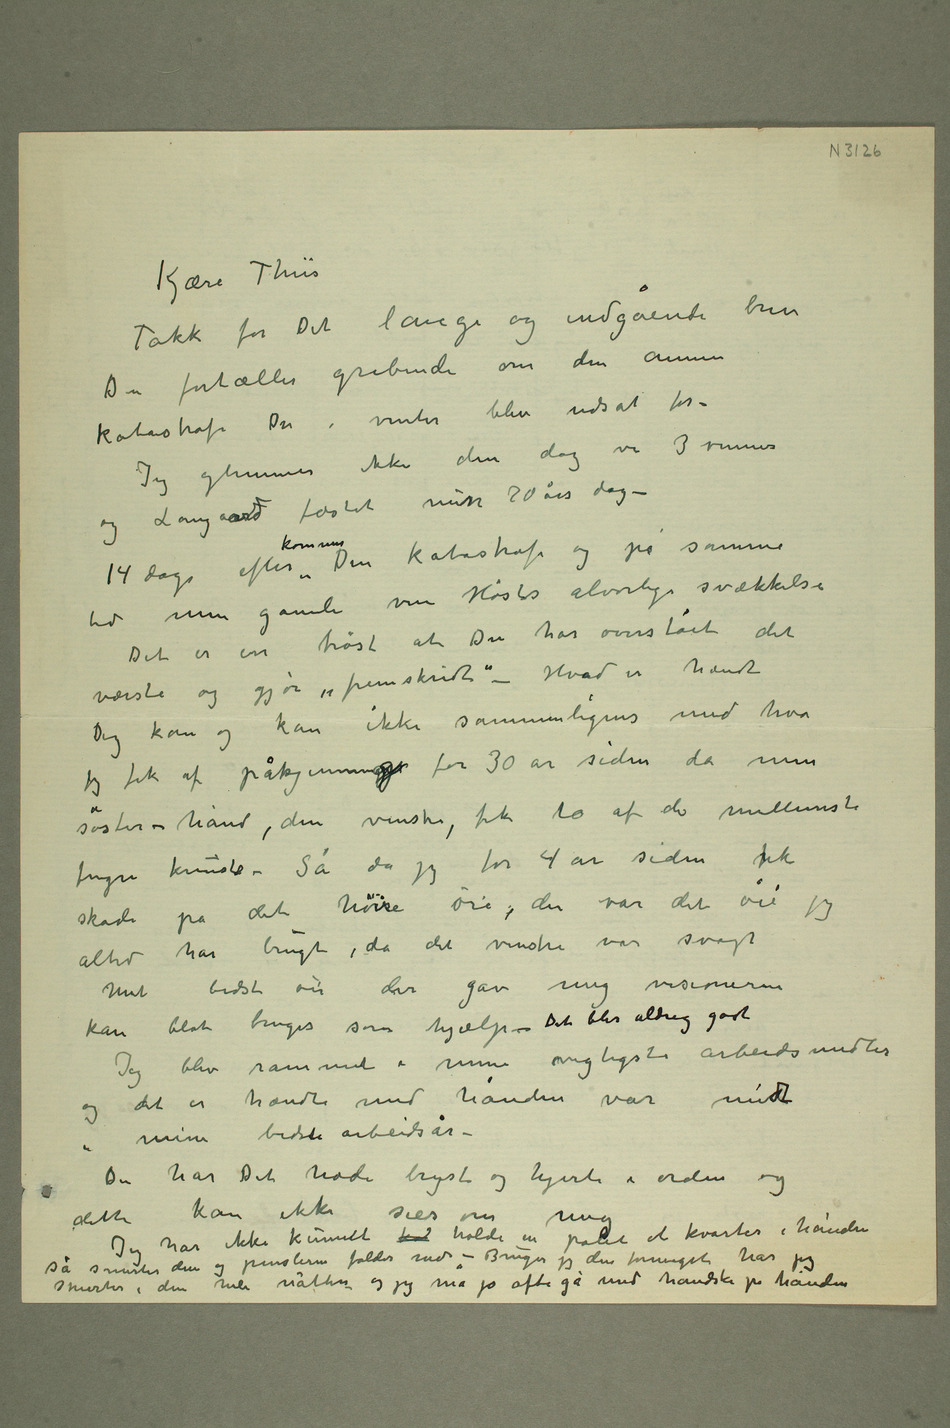 N 3126
Kjære Thiis
Takk for Dit lange og indgående brev
Du fortæller gribende om den annen
katastrofe Du i vinter blev udsat for –
Jeg glemmer ikke den dag vi 3 venner
og Langaard festet min 70 års dag –
14 dage efter kommer Din katastrofe og på samme
tid min gamle ven Høsts alvorlige svækkelse
Det er en trøst at Du har overstået det
værste og gjør „fremskridt“ – Hvad er hændt
Dig kan og kan ikke sammenlignes med hva
jeg fik af påkjenning for 30 år siden da min
hånd, den venstre, fik to af de mellemste
fingre knuste – Så da jeg for 4 år siden fik
skade på det høire øie, der var det øie jeg
altid har brugt, da det venstre var svagt
Mit bedste øie der gav mig visionerne
kan blot bruges som hjælp – Det blir aldrig godt
Jeg blev rammet i mine vigtigste arbeidsmidler
og det er hændte med hånden var midt
i mine bedste arbeidsår –
Du har Dit hode bryst og hjerte i orden og
dette kan ikke sies om mig
Jeg har ikke kunnet holde en palet et kvarter i hånden
så smerter den og penslerne falder ned – Bruger jeg den forresten har jeg
smerter i den hele natten og jeg må jo ofte gå med handske på hånden